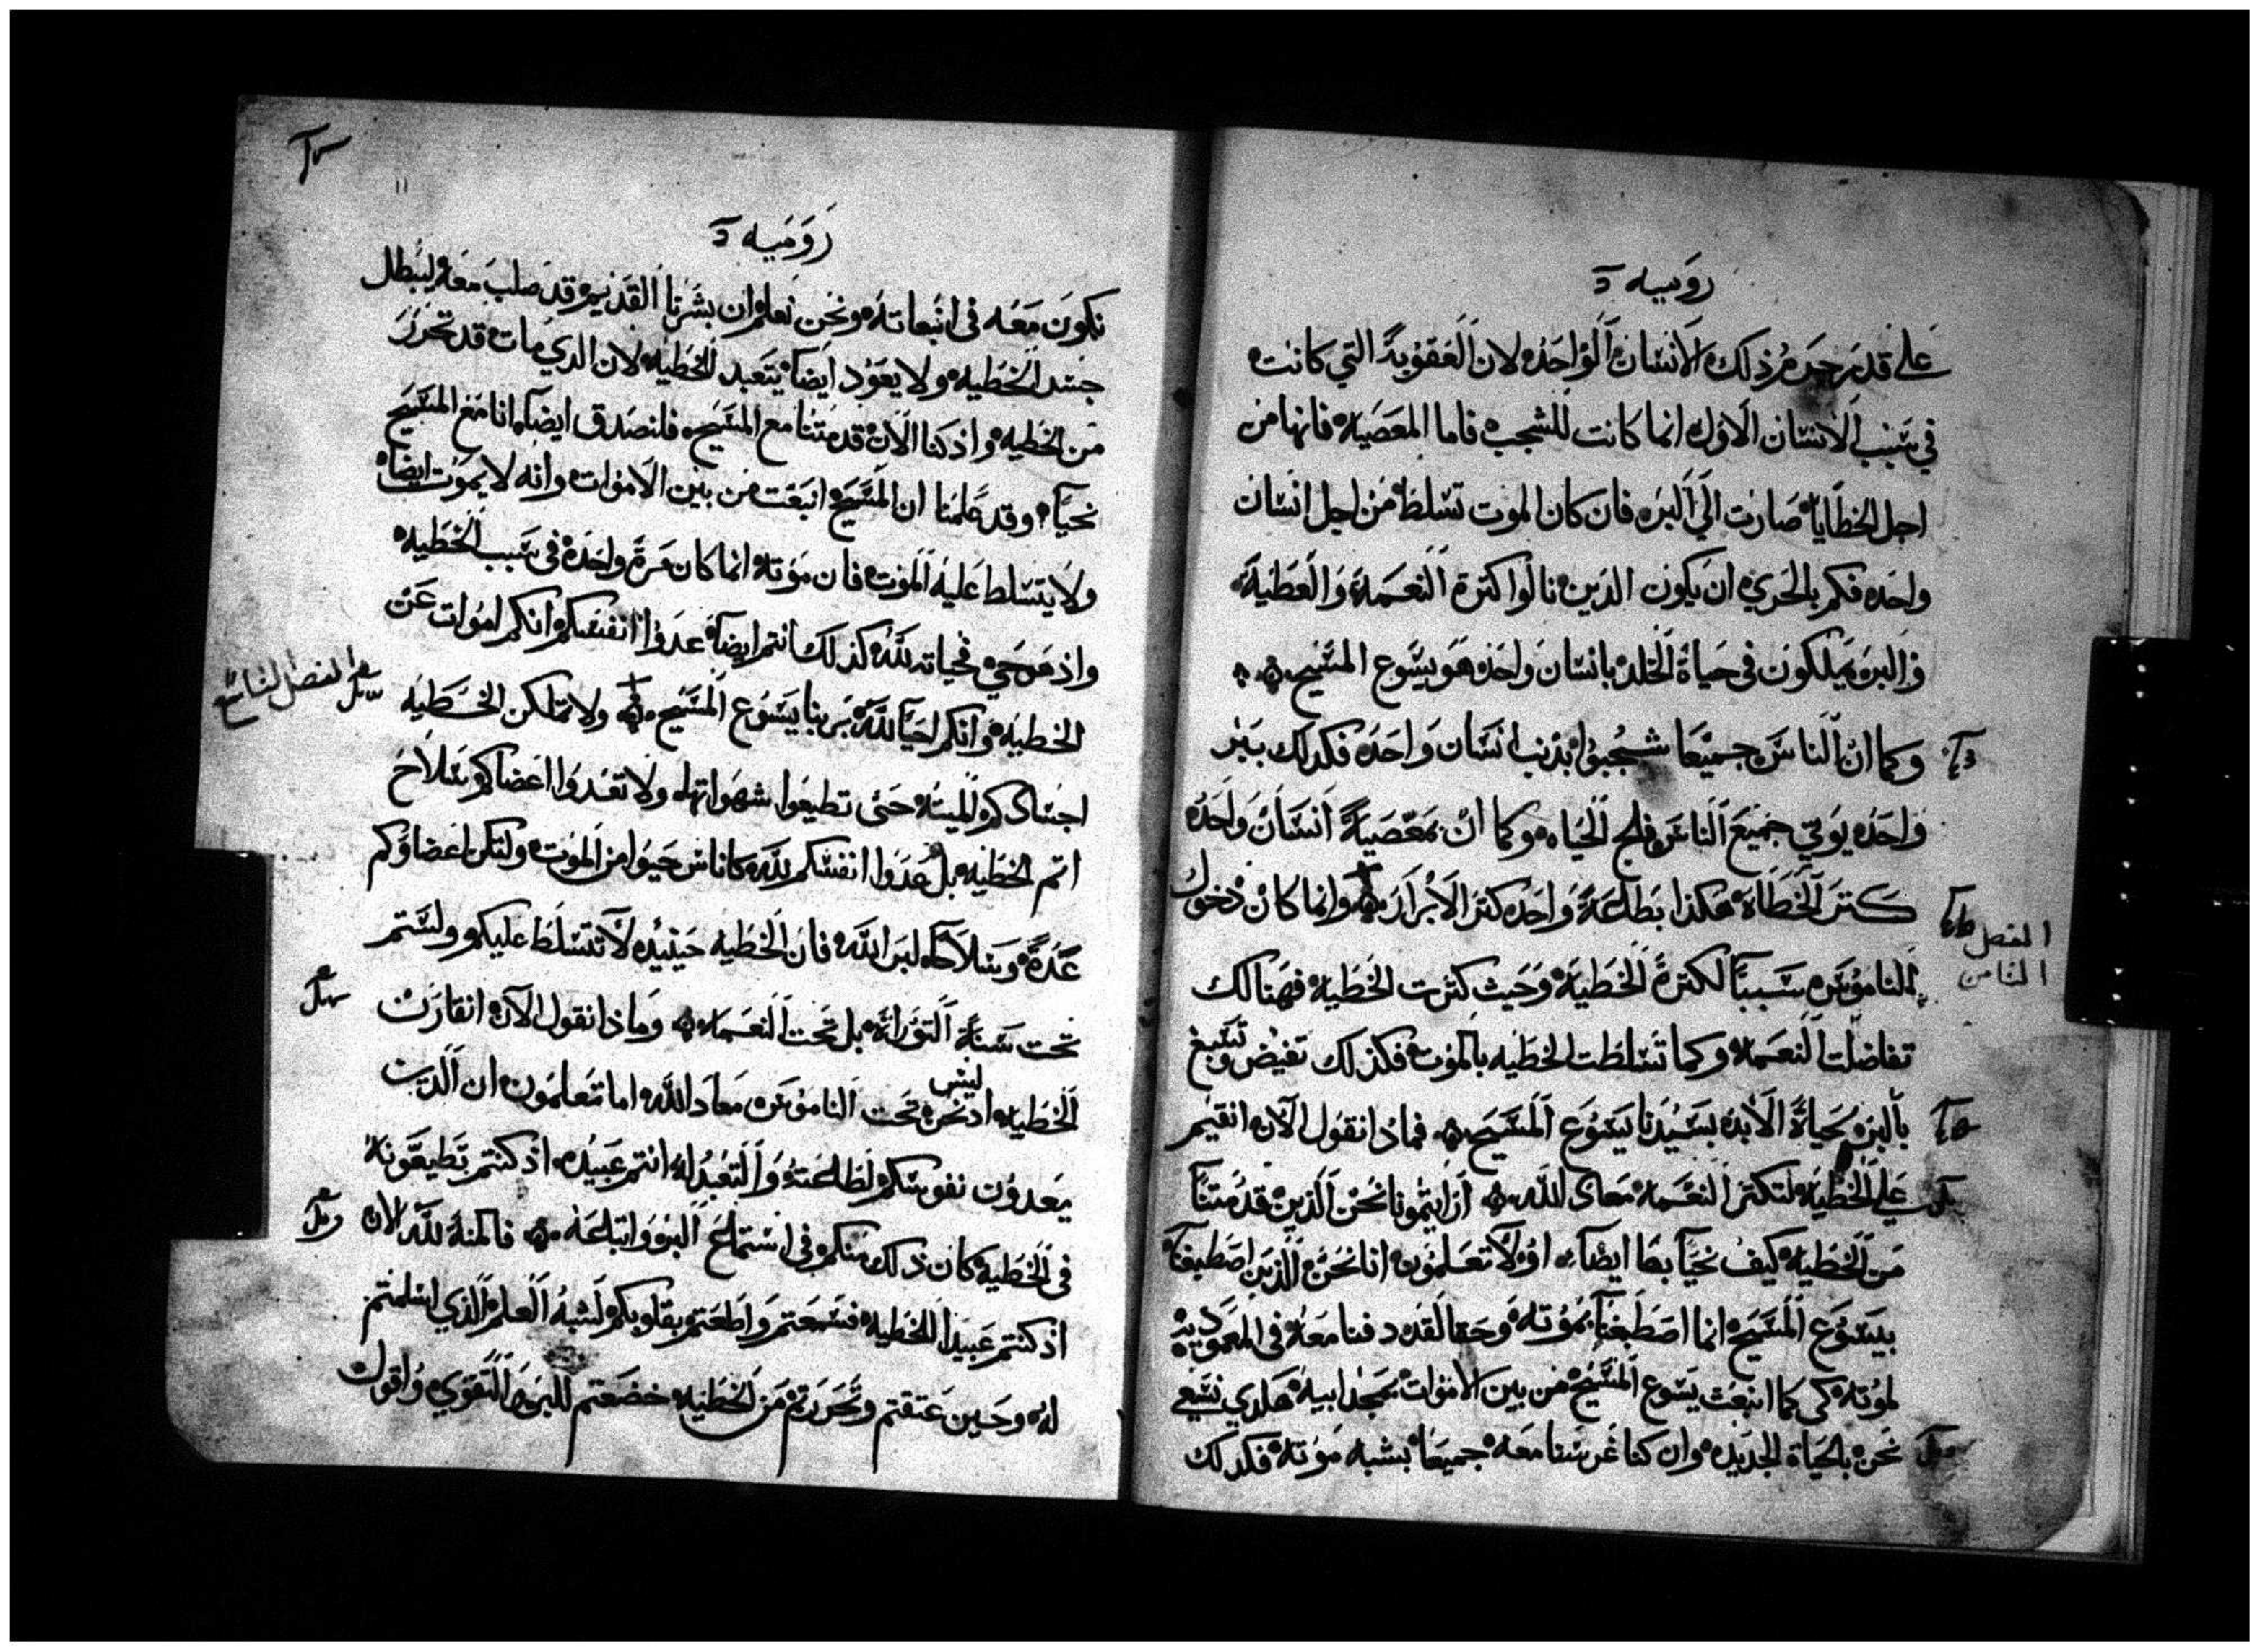 روميه
على قدر جرم ذلك الانسان الواحد لان العقوبة التي كانت
في سبب الانسان الاول انما كانت للشجب فاما المعصيه فانها من
اجل الخطايا صارت الي البر فان كان الموت تسلط من اجل انسان
واحد فكم بالحري ان يكون الدين نالوا كترة النعمة والعطية
والبر يملكون في حياة الخلد بانسان واحد هو يسوع المسيح
وكما ان الناس جميعا شجبوا بذنب انسان واحد فكدلك ببر
واحد يوتي جميع الناس فلج الحياه وكما ان بمعصية انسان واحد
كتر الخطاة هكذا بطاعة واحد كتر الابرار وانما كان دخول
الفصل الثامن
الناموس سببا لكترة الخطية وحيث كترت الخطية فهنالك
تفاضلت النعمه وكما تسلطت الخطيه بالموت فكذلك تفيض وتسبغ
بالبر بحياة الابد بسيدنا يسوع المسيح فماذا نقول الان انقيم
علي الخطية لتكتر النعمه معاد الله ارايتمونا نحن الذين قد متنا
من الخطيه كيف نحيا بها ايضا اولا تعلمون انا نحن الذين اصطبغنا
بيسوع المسيح انما اصطبغنا بموته وحقا لقد دفنا معه في المعموديه
لموته كي كما انبعث يسوع المسيح من بين الاموات بمجد ابيه هكدي نسعي
نحن بالحياة الجديده وان كنا غرسنا معه جميعا بشبه موته فكدلك
روميه
نكون معه في انبعاته ونحن نعلم ان بشرنا القديم قد صلب معه ليبطل
جسد الخطيه ولا يعود ايضا يتعبد للخطيه لان الدي مات قد تحرر
من الخطيه واذ كنا الان قد متنا مع المسيح فلنصدق ايضا انا مع المسيح
نحيا وقد علمنا ان المسيح انبعت من بين الاموات وانه لا يموت ايضا
ولا يتسلط عليه الموت فان موته انما كان مرة واحدة في سبب الخطيه
واذ هو حي فحياته لله كذلك انتم ايضا عدوا انفسكم انكم اموات عن
الخطية وانكم احيا لله بربنا يسوع المسيح ولا تملكن الخطيه
الفصل التاسع
اجسادكم الميته حتى تطيعوا شهواتها ولا تعدوا اعضاكم سلاح
اتم الخطيه بل عدوا انفسكم لله كاناس حيوا من الموت ولتكن اعضاوكم
عدة وسلاحا لبر الله فان الخطيه حينيذ لا تتسلط عليكم ولستم
تحت سنة التوراة بل تحت النعمه وماذا نقول الان انقارف
الخطيه اد نحن ليس تحت الناموس معاد الله اما تعلمون ان الدي
تعدون نفوسكم لطاعته والتعبد له انتم عبيده اذ كنتم تطيعونه
في الخطيه كان ذلك منكم في استماع البر واتباعه فالمنة لله الان
اذ كنتم عبيدا للخطيه فسمعتم واطعتم بقلوبكم لشبه العلم الذي اسلمتم
له وحين عتقتم وتحررتم من الخطيه خضعتم للبر والتقوي واقول